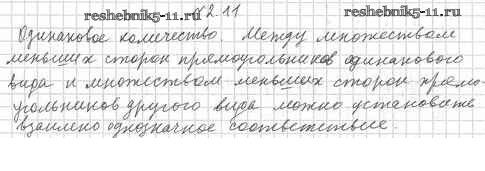 reshebnik5-11.ru
reshebnik5-11.ru
2.11
Одинаковое количество. Между множеством
меньших сторон прямоугольников одинакового
вида и множеством меньших сторон прямо-
угольников другого вида можно установить
взаимно однозначное соответствие.